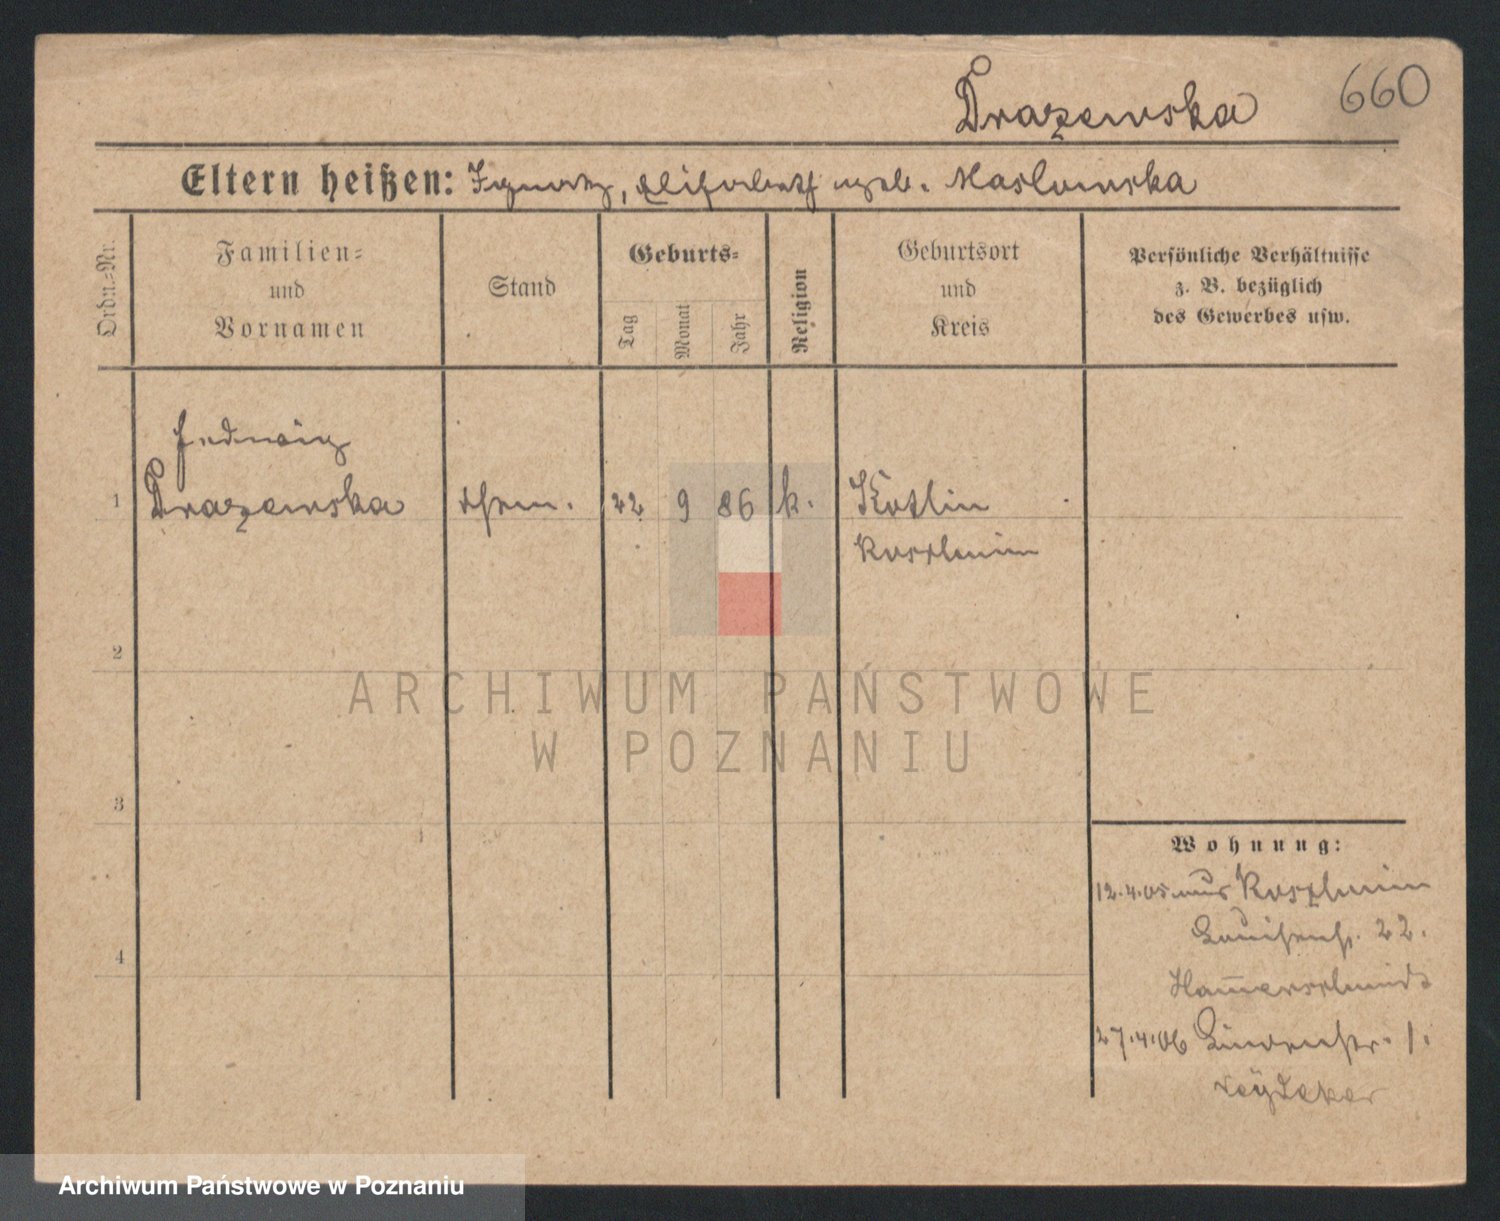 Drazewska 660
Eltern heißen: Ignatz, Elisabeth geb. Maslowska
Ordn.-Nr.
Familien-
und
Vornamen
Stand
Geburts-
Tag
Monat
Jahr
Religion
Geburtsort
und
Kreis
Persönliche Verhältnisse
z. B. bezüglich
des Gewerbes usw.
Hedwig
1 Drazewska 22 9 86 k. Kotlin
Koschmin
2
ARCHIWUM PAŃSTWOWE
W POZNANIU
3
Wohnung:
12.4.05 aus Koschmin
Louisenstr. 22.
Hammerschmidt
4
27.4.06 Lindenstr. 1.
Archiwum Państwowe w Poznaniu